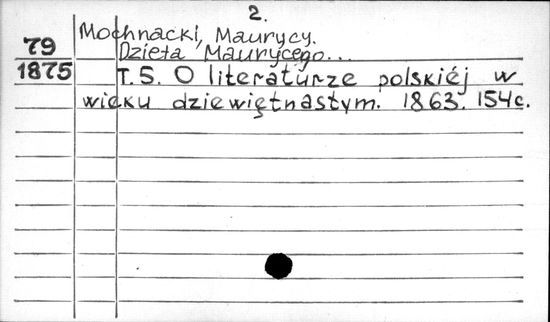 2.
Mochnacki, Maurycy.
79 Dzieła Maurycego...
1875 T. 5. O literaturze polskiéj w
wieku dziewiętnastym. 1863. 154c.